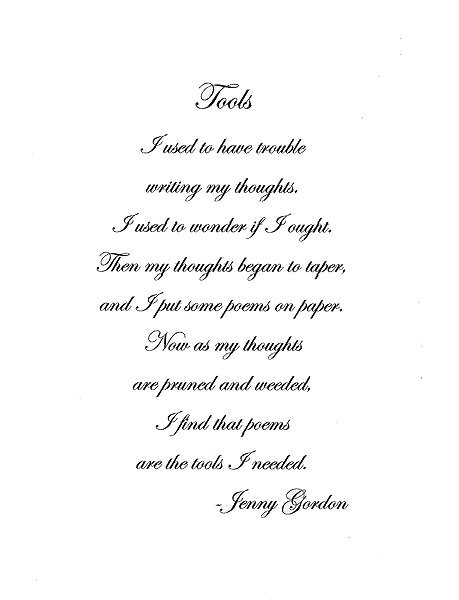 Tools
I used to have trouble
writing my thoughts.
I used to wonder if I ought.
Then my thoughts began to taper,
and I put some poems on paper.
Now as my thoughts
are pruned and weeded,
I find that poems
are the tools I needed.
-Jenny Gordon